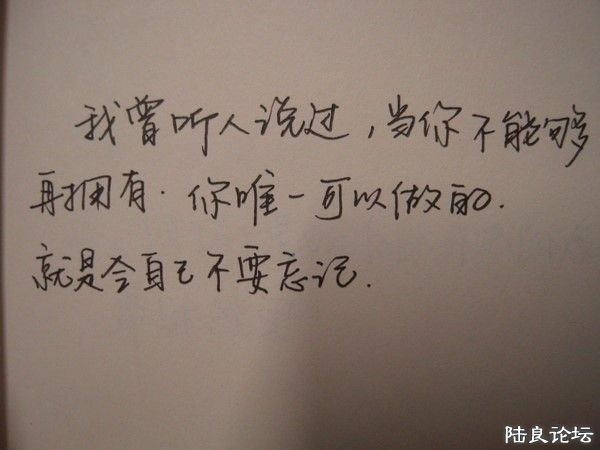 我曾听人说过,当你不能够
再拥有.你唯一可以做的.
就是令自己不要忘记.
陆良论坛